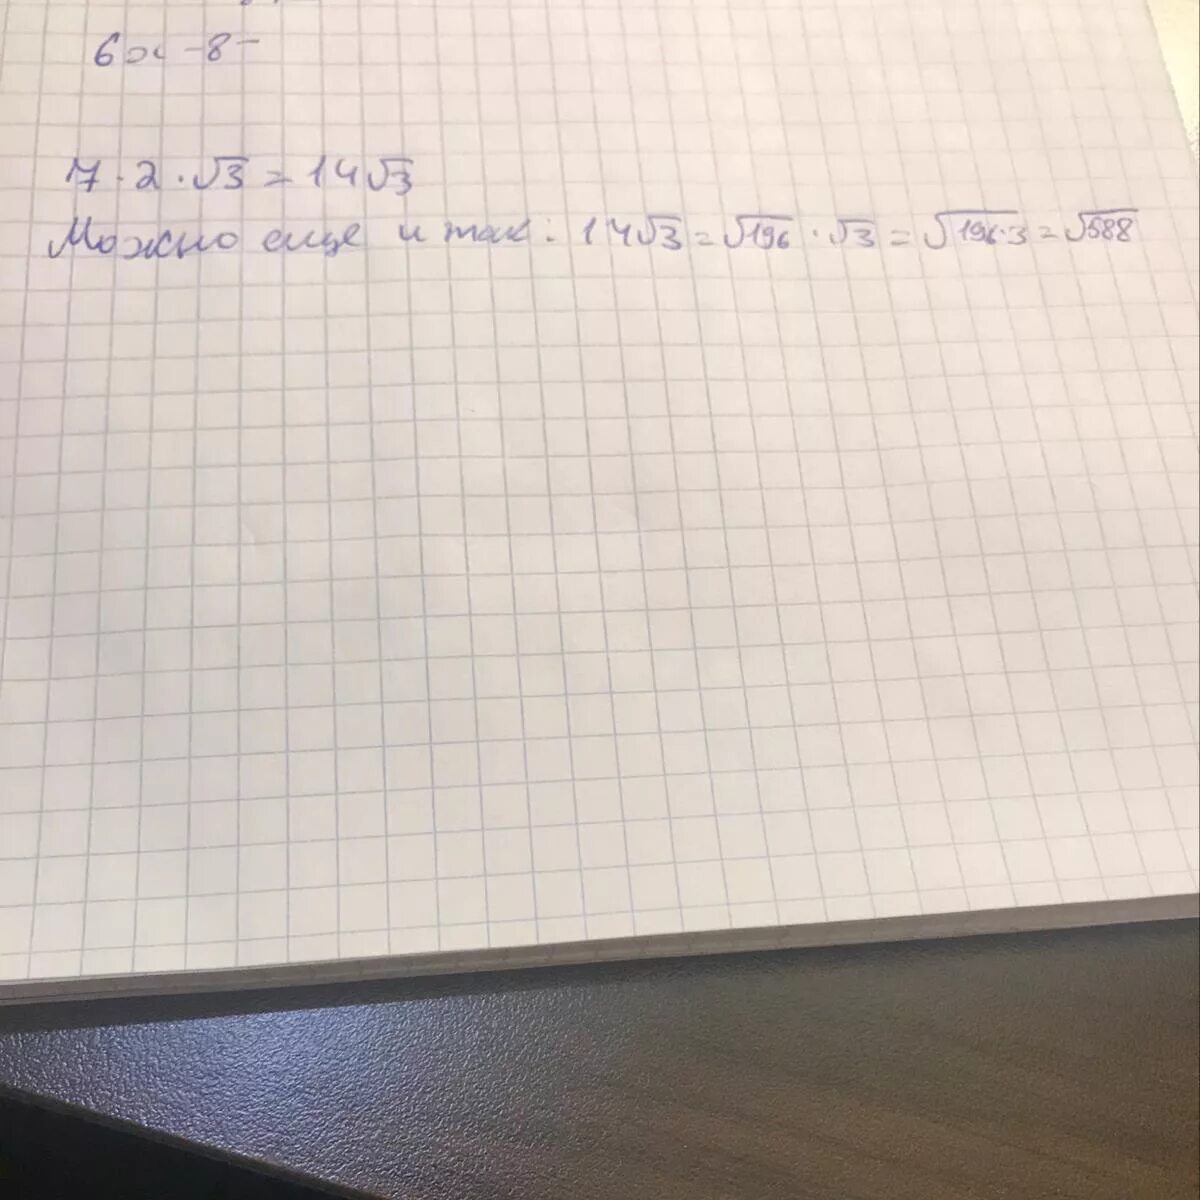 6x - 8 -
7 · 2 · √3 = 14√3
Можно еще и так: 14√3 = √196 · √3 = √196·3 = √588